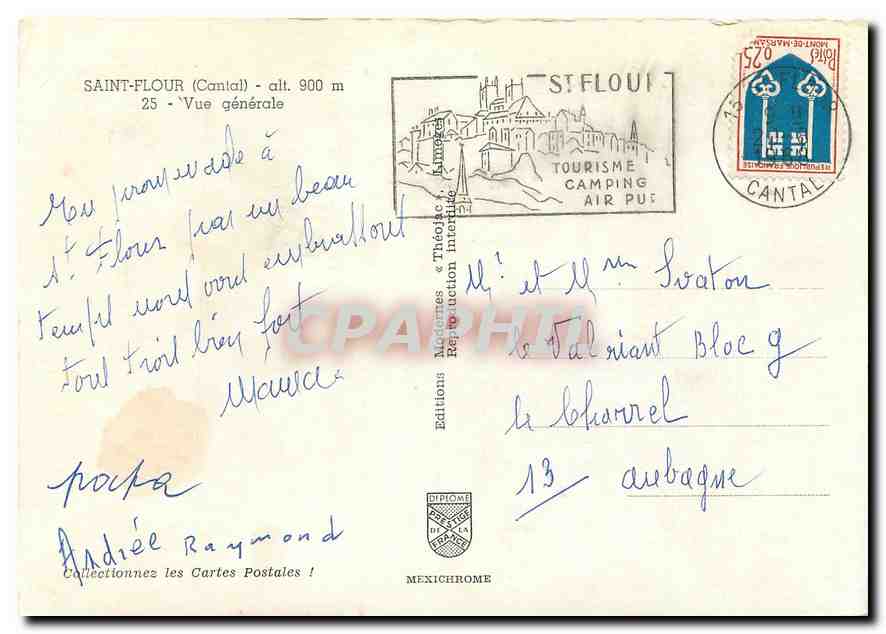 SAINT-FLOUR (Cantal) - alt. 900 m
25 - Vue générale
En promenade à
St Flour par un beau
temps nous vous embrassons
tous trois bien fort
papa
Andrée Raymond
Collectionnez les Cartes Postales !
Editions Modernes « Théojac », Limoges
Reproduction interdite
DIPLOME
PRESTIGE
DE LA
FRANCE
MEXICHROME
ST FLOUR
TOURISME
CAMPING
AIR PUR
CANTAL
POSTES
0,25
MONT-DE-MARSAN
REPUBLIQUE FRANÇAISE
Mr et Mme Svaton
le Valriant Bloc 9
le Charrel
13 aubagne
CPAPHIL